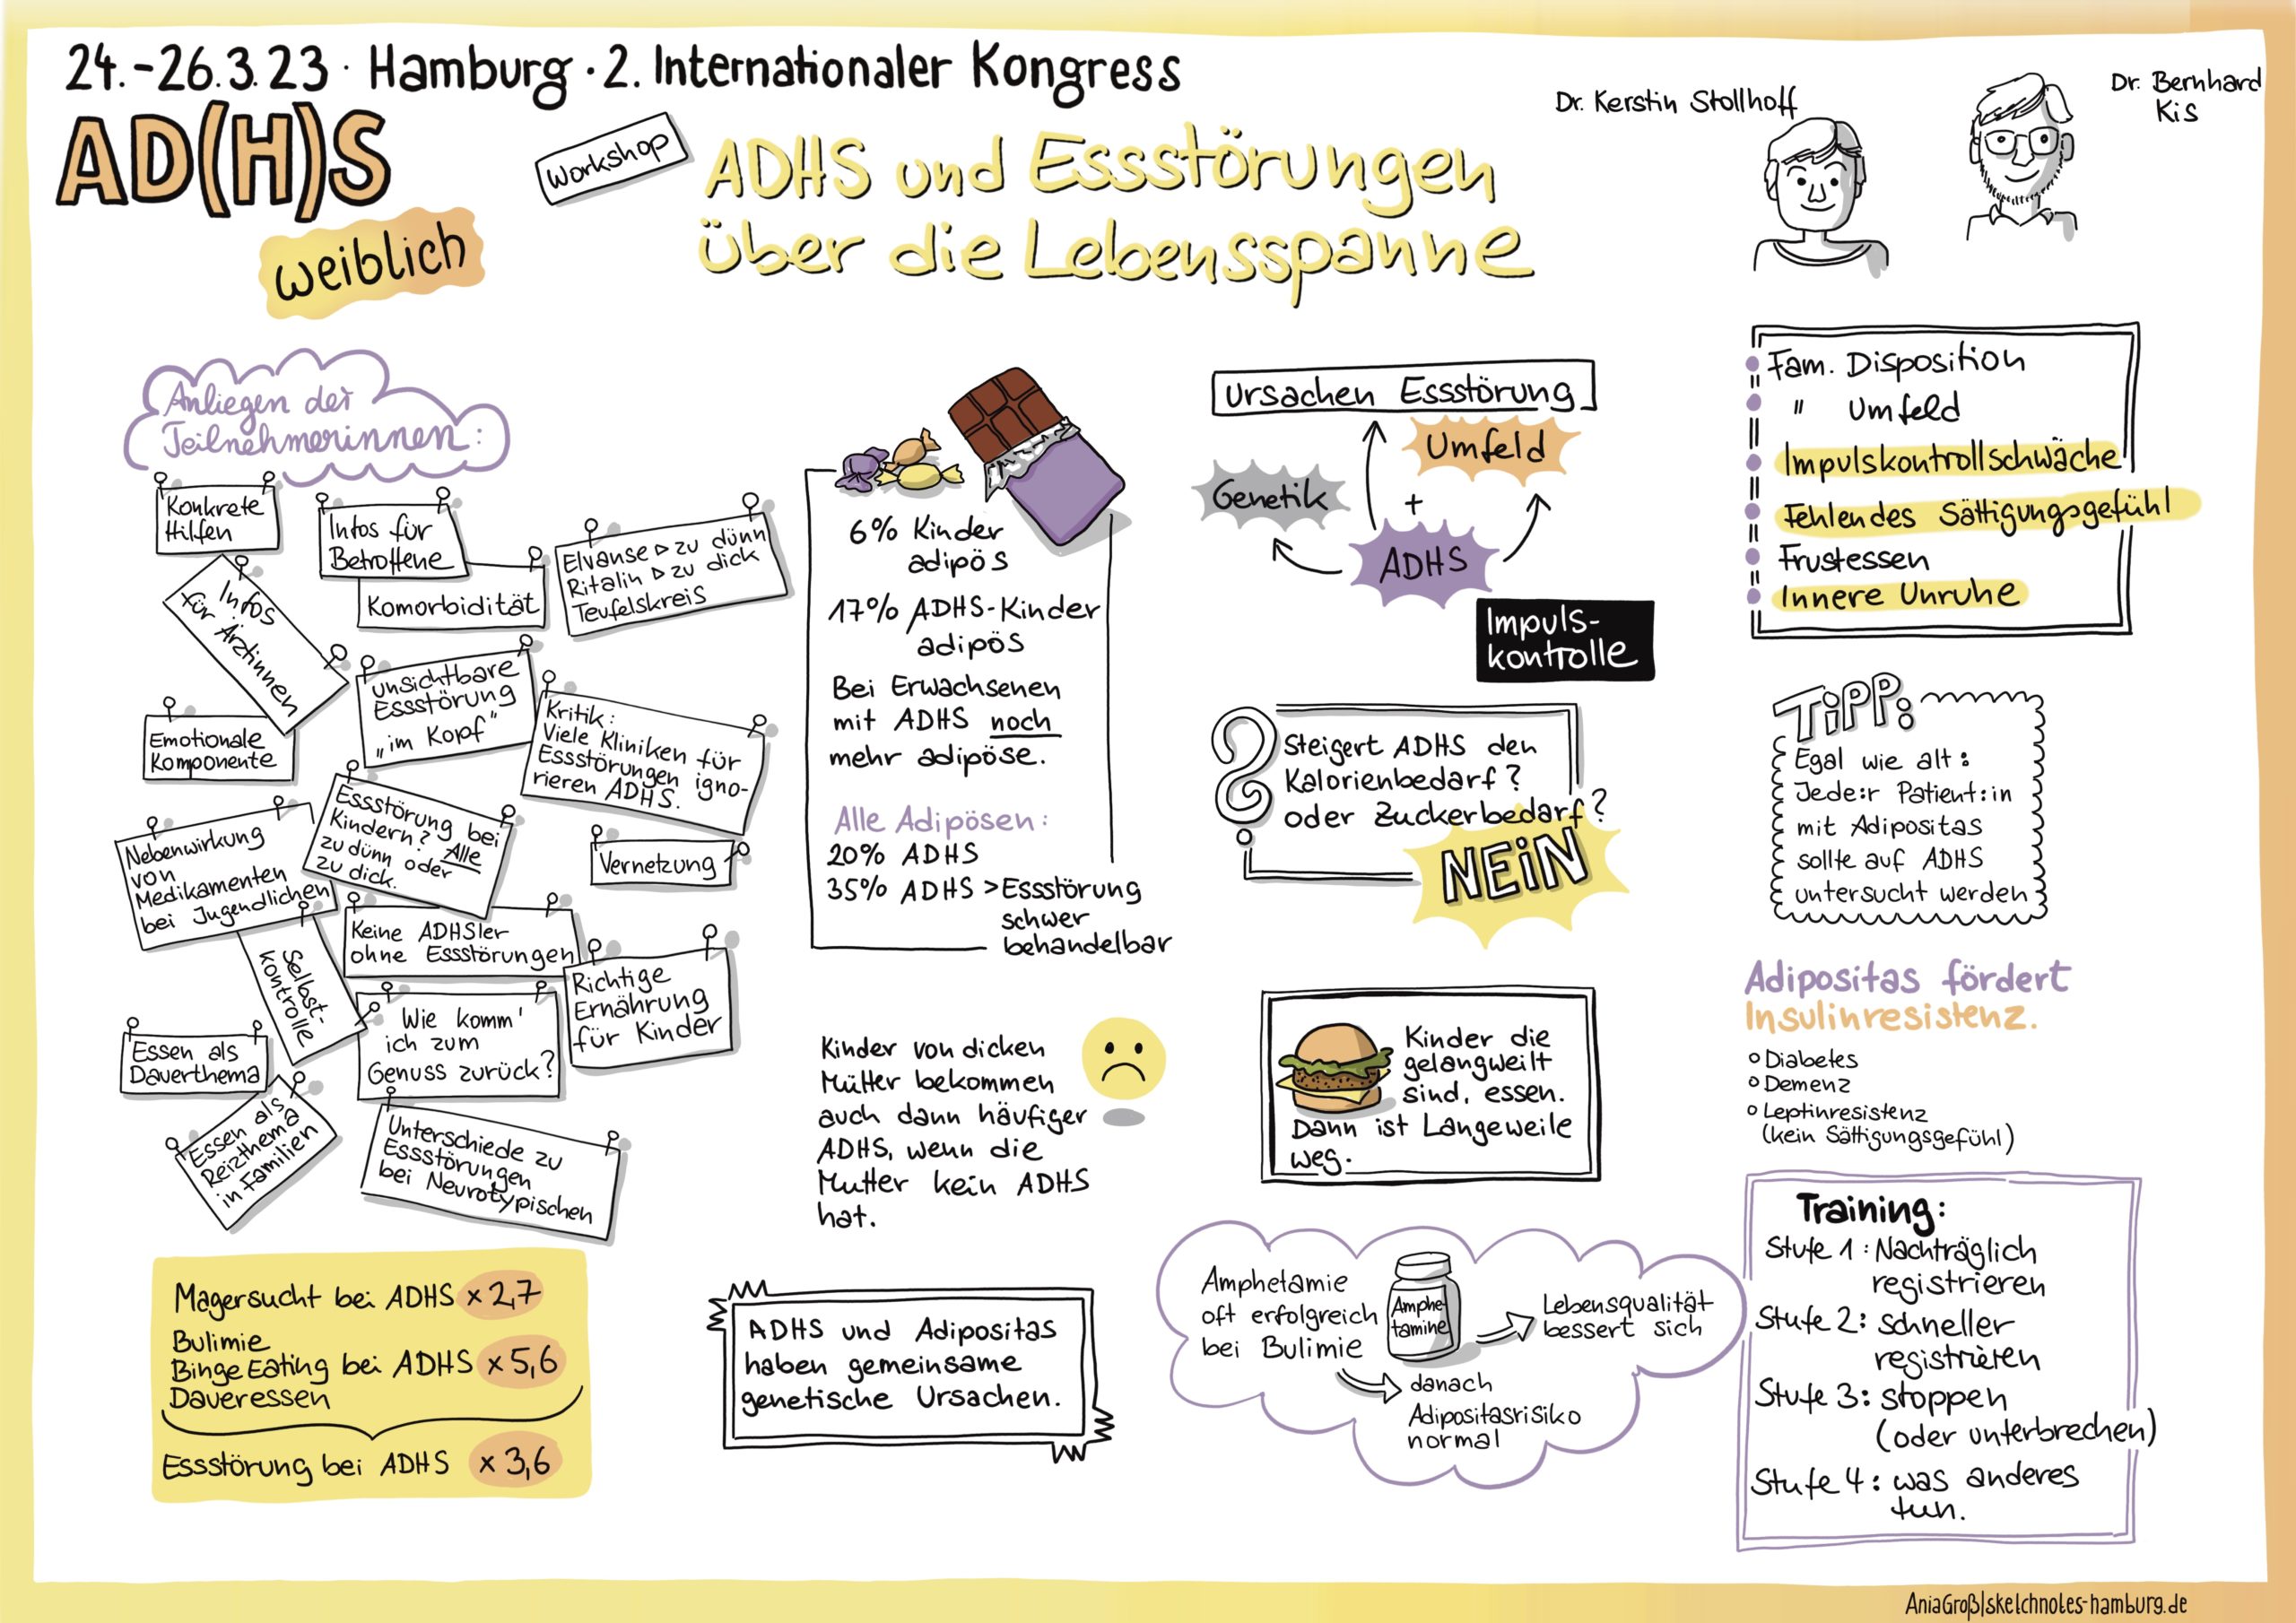 24.-26.3.23 · Hamburg · 2. Internationaler Kongress
AD(H)S
weiblich
Workshop
ADHS und Essstörungen
über die Lebensspanne
Dr. Kerstin Stollhoff
Dr. Bernhard
Kis
Anliegen der
Teilnehmerinnen:
Konkrete
Hilfen
Infos für
Betroffene
Komorbidität
Elvanse ▷ zu dünn
Ritalin ▷ zu dick
Teufelskreis
Infos
für Ärztinnen
unsichtbare
Essstörung
„im Kopf"
Kritik:
Viele Kliniken für
Essstörungen igno-
rieren ADHS.
Emotionale
Komponente
Essstörung bei
Kindern? Alle
zu dünn oder
zu dick.
Nebenwirkung
von
Medikamenten
bei Jugendlichen
Vernetzung
Keine ADHSler
ohne Essstörungen
Selbst-
kontrolle
Richtige
Ernährung
für Kinder
Wie komm'
ich zum
Genuss zurück?
Essen als
Dauerthema
Essen als
Reizthema
in Familien
Unterschiede zu
Essstörungen
bei Neurotypischen
Magersucht bei ADHS x 2,7
Bulimie
Binge Eating bei ADHS x 5,6
Daueressen
Essstörung bei ADHS x 3,6
6% Kinder
adipös
17% ADHS-Kinder
adipös
Bei Erwachsenen
mit ADHS noch
mehr adipöse.
Alle Adipösen:
20% ADHS
35% ADHS > Essstörung
schwer
behandelbar
Kinder von dicken
Mütter bekommen
auch dann häufiger
ADHS, wenn die
Mutter kein ADHS
hat.
ADHS und Adipositas
haben gemeinsame
genetische Ursachen.
Ursachen Essstörung
Umfeld
Genetik
+
ADHS
Impuls-
kontrolle
Steigert ADHS den
Kalorienbedarf?
oder Zuckerbedarf?
NEIN
Kinder die
gelangweilt
sind, essen.
Dann ist Langeweile
weg.
Amphetamie
oft erfolgreich
bei Bulimie
Amphe-
tamine
Lebensqualität
bessert sich
danach
Adipositasrisiko
normal
Fam. Disposition
" Umfeld
Impulskontrollschwäche
Fehlendes Sättigungsgefühl
Frustessen
Innere Unruhe
TiPP:
Egal wie alt:
Jede:r Patient:in
mit Adipositas
sollte auf ADHS
untersucht werden
Adipositas fördert
Insulinresistenz.
o Diabetes
o Demenz
o Leptinresistenz
(kein Sättigungsgefühl)
Training:
Stufe 1: Nachträglich
registrieren
Stufe 2: schneller
registrieren
Stufe 3: stoppen
(oder unterbrechen)
Stufe 4: was anderes
tun.
AniaGroß|sketchnotes-hamburg.de